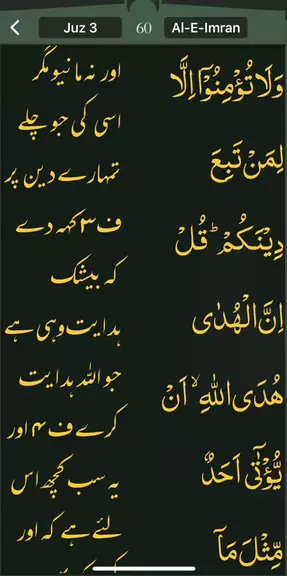 Juz 3 60 Al-E-Imran
وَلَا تُؤْمِنُوْٓا اِلَّا
لِمَنْ تَبِعَ
دِيْنَكُمْ ؕ قُلْ
اِنَّ الْهُدٰى
هُدَى اللّٰهِ ۙ اَنْ
يُّؤْتٰٓى اَحَدٌ
مِّثْلَ مَاۤ
اور نہ مانیو مگر
اسی کی جو چلے
تمہارے دین پر
ف۳ کہہ دے
کہ بیشک
ہدایت وہی ہے
جو اللہ ہدایت
کرے ف۴ اور
یہ سب کچھ اس
لئے ہے کہ اور